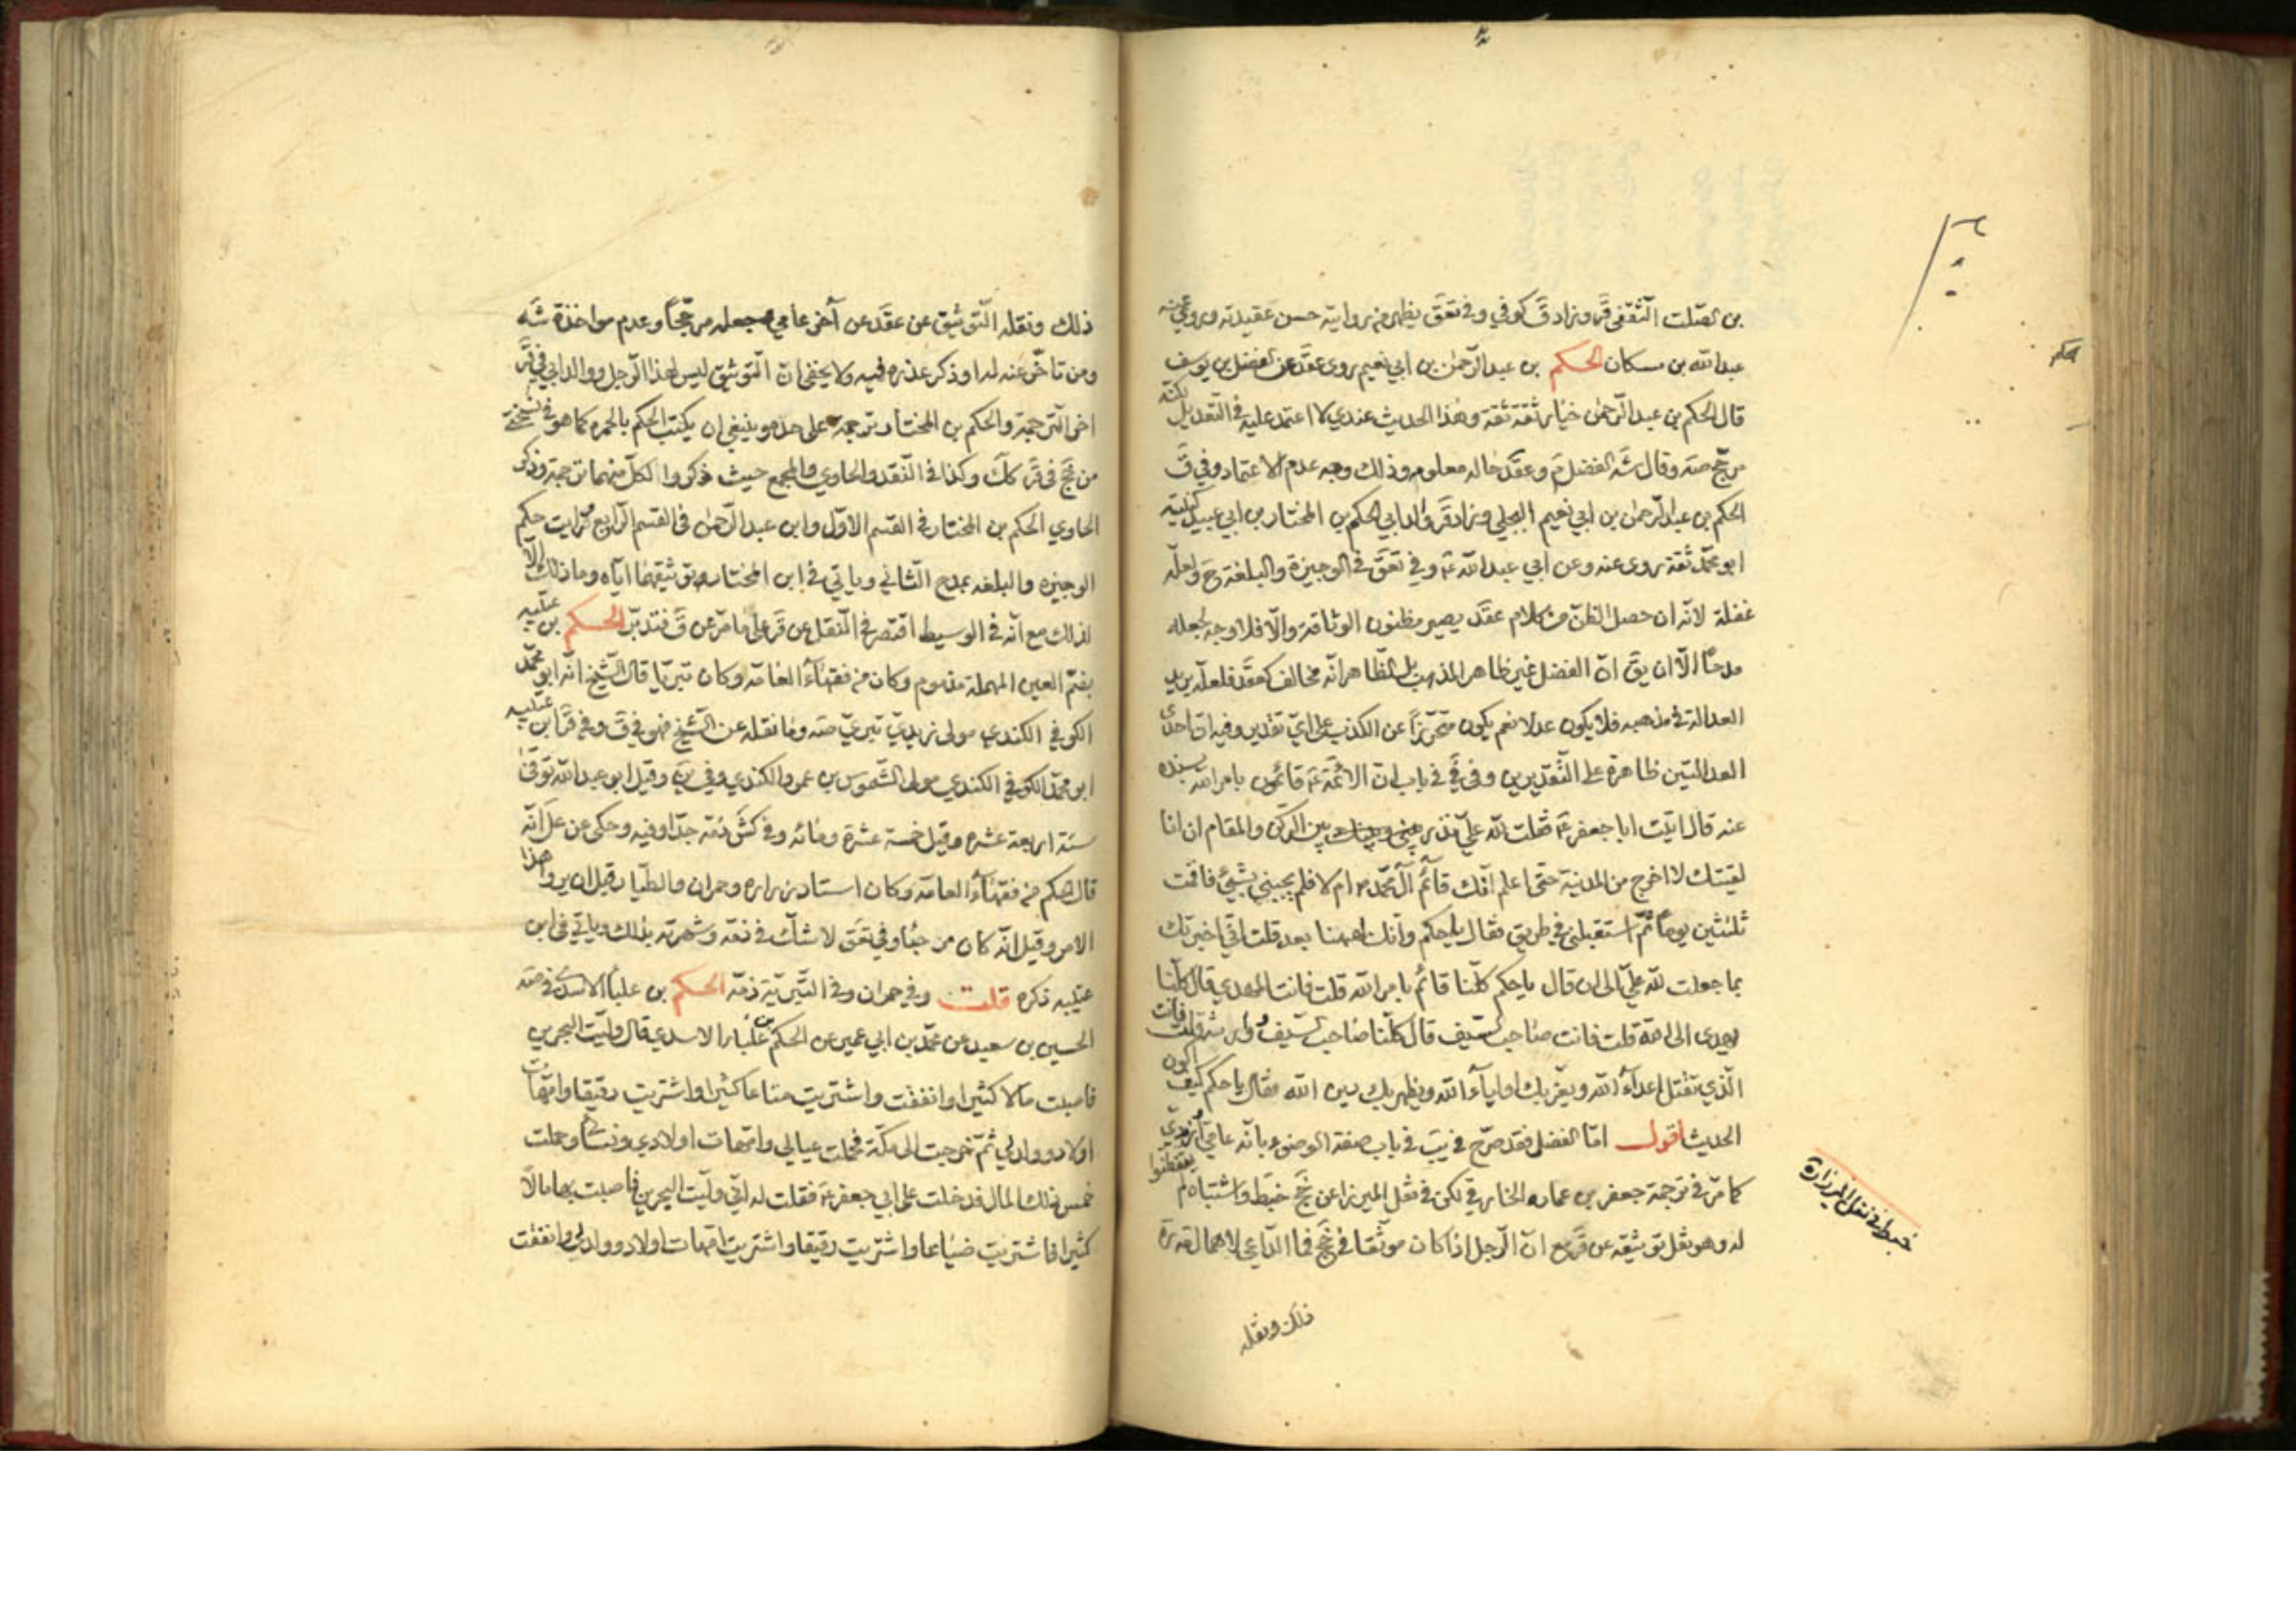 بن الصّلت الثقفي قر وزاد ق كوفي وفي تعق يظهر من روايته حسن عقيدته وروى عنه
عبدالله بن مسكان الحكم بن عبدالرّحمن بن ابي نعيم روى عقد عن الفضل بن يوسف
قال الحكم بن عبدالرّحمن خيار ثقة ثقة وهذا الحديث عندي لا اعتمد عليه في التّعديل لكنّه
مرجّح صه وقال شه الفضل وعقد حاله معلوم وذلك وجه عدم الاعتماد وفي ق
الحكم بن عبدالرّحمن بن ابي نعيم البجلي وزاد قر والد ابي الحكم بن المختار بن ابي عبيد كنيته
ابو محمّد ثقة روى عنه وعن ابي عبدالله ع وفي تعق في الوجيزة والبلغة ح ولعلّه
غفلة لانّه ان حصل الظنّ من كلام عقد يصير مظنون الوثاقة والّا فلا وجه لجعله
مدحًا الّا ان يق انّ الفضل غير ظاهر المذهب بل الظّاهر انّه مخالف كعقد فلعلّه يريد
العدالة في مذهبه فلا يكون عدلا نعم يكون متحرّزًا عن الكذب على ايّ تقدير وفيه انّ احدى
العدالتين ظاهرة على التّقديرين وفي في في باب انّ الائمّة ع قائمون بامر الله بسنده
عنه قال اتيت ابا جعفر ع فقلت لله عليّ نذر بين الركن والمقام ان انا
لقيتك لا اخرج من المدينة حتى اعلم انّك قائم آل محمّد ام لا فلم يجبني بشيء فاقمت
ثلثين يوماً ثمّ استقبلني في طريق فقال يا حكم وانّك لههنا بعد قلت انّي اخبرتك
بما جعلت لله عليّ الى ان قال يا حكم كلّنا قائم بامر الله قلت فانت المهدي قال كلّنا
يهدى الى الله قلت فانت صاحب السّيف قال كلّنا صاحب السّيف ووارث قلت فانت
الّذي تقتل اعداء الله ويعزّ بك اولياء الله ويظهر بك دين الله فقال يا حكم كيف اكون
الحديث اقول امّا الفضل فقد صرّح في يب في باب صفة الوضوء بانّه عامي
كما مرّ في ترجمة جعفر بن عمارة الخارقي لكن في نقل الميرزا عن نجخ خبط واشتباه لم يتفطّنوا
له وهو نقل توثيقه عن قر مع انّ الرّجل اذا كان موثّقا في نجخ فما الدّاعي لاهماله قدره
ذلك ونقله
حكم
خبط في نقل الميرزا ره
ذلك ونقله التّوثيق عن عقد عن آخر عامي وجعله مرجّحًا وعدم مواخذة شه
ومن تاخّر عنه له او ذكر عذره فيه ولا يخفى انّ التّوثيق ليس لهذا الرّجل ووالد ابي في قر
اخر التّرجمة والحكم بن المختار ترجمة على حدة وينبغي ان يكتب الحكم بالحمرة كما هو في نسختي
من نجخ في قر كك وكذا في النّقد والحاوي والمجمع حيث ذكروا لكلّ منهما ترجمة وذكر
الحاوي الحكم بن المختار في القسم الاوّل وابن عبدالرّحمن في القسم الرّابع ثمّ رايت حكم
الوجيزة والبلغة بمدح الثّاني وياتي في ابن المختار توثيقهما ايّاه وما ذلك الّا
لذلك مع انّه في الوسيط اقتصر في النّقل عن قر على ما مرّ عن ق فتدبّر الحكم بن عتيبه
بضمّ العين المهملة مذموم وكان من فقهاء العامّة وكان تبريًا قال الشّيخ انّه ابو محمّد
الكوفي الكندي مولى زيدي تبري صه وما نقله عن الشّيخ فهو في ق وفي قر ابن عتيبه
ابو محمّد الكوفي الكندي مولى الشّموس بن عمرو الكندي وفي ين وقيل ابو عبدالله توفّى
سنة اربعة عشرة وقيل خمسة عشرة ومائه وفي كش ذمّه جدّا وفيه وحكى عن عل انّه
قال الحكم من فقهاء العامّة وكان استاد زراره وحمران والطيّار قبل ان يروا هذا
الامر وقيل انّه كان مرجئا وفي تعق لا شكّ في ذمّه وشهرته بذلك وياتي في ابن
عتيبه ذكره قلت وفي حمران وفي التّبريّة ذمّه الحكم بن علباء الاسدي في صه
الحسين بن سعيد عن محمّد بن ابي عمير عن الحكم بن علباء الاسدي قال ولّيت البحرين
فاصبت مالا كثيرا وانفقت واشتريت متاعا كثيرا واشتريت رقيقا وامّهات
اولاد وولد لي ثمّ خرجت الى مكّة فحملت عيالي وامّهات اولادي ونسائي وحملت
خمس ذلك المال فدخلت على ابي جعفر ع فقلت له انّي ولّيت البحرين فاصبت بها مالًا
كثيرا فاشتريت ضياعا واشتريت رقيقا واشتريت امّهات اولاد وولد لي وانفقت